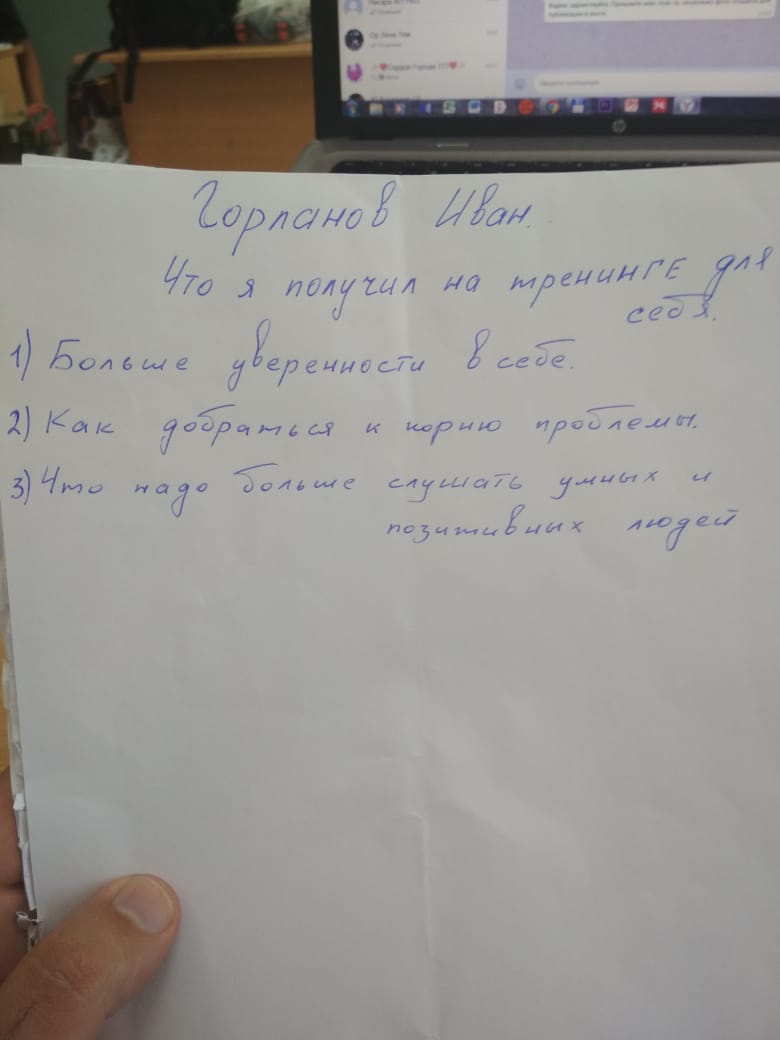 Горланов Иван.
Что я получил на тренинге для
себя.
1) Больше уверенности в себе.
2) Как добраться к корню проблемы.
3) Что надо больше слушать умных и
позитивных людей
hp